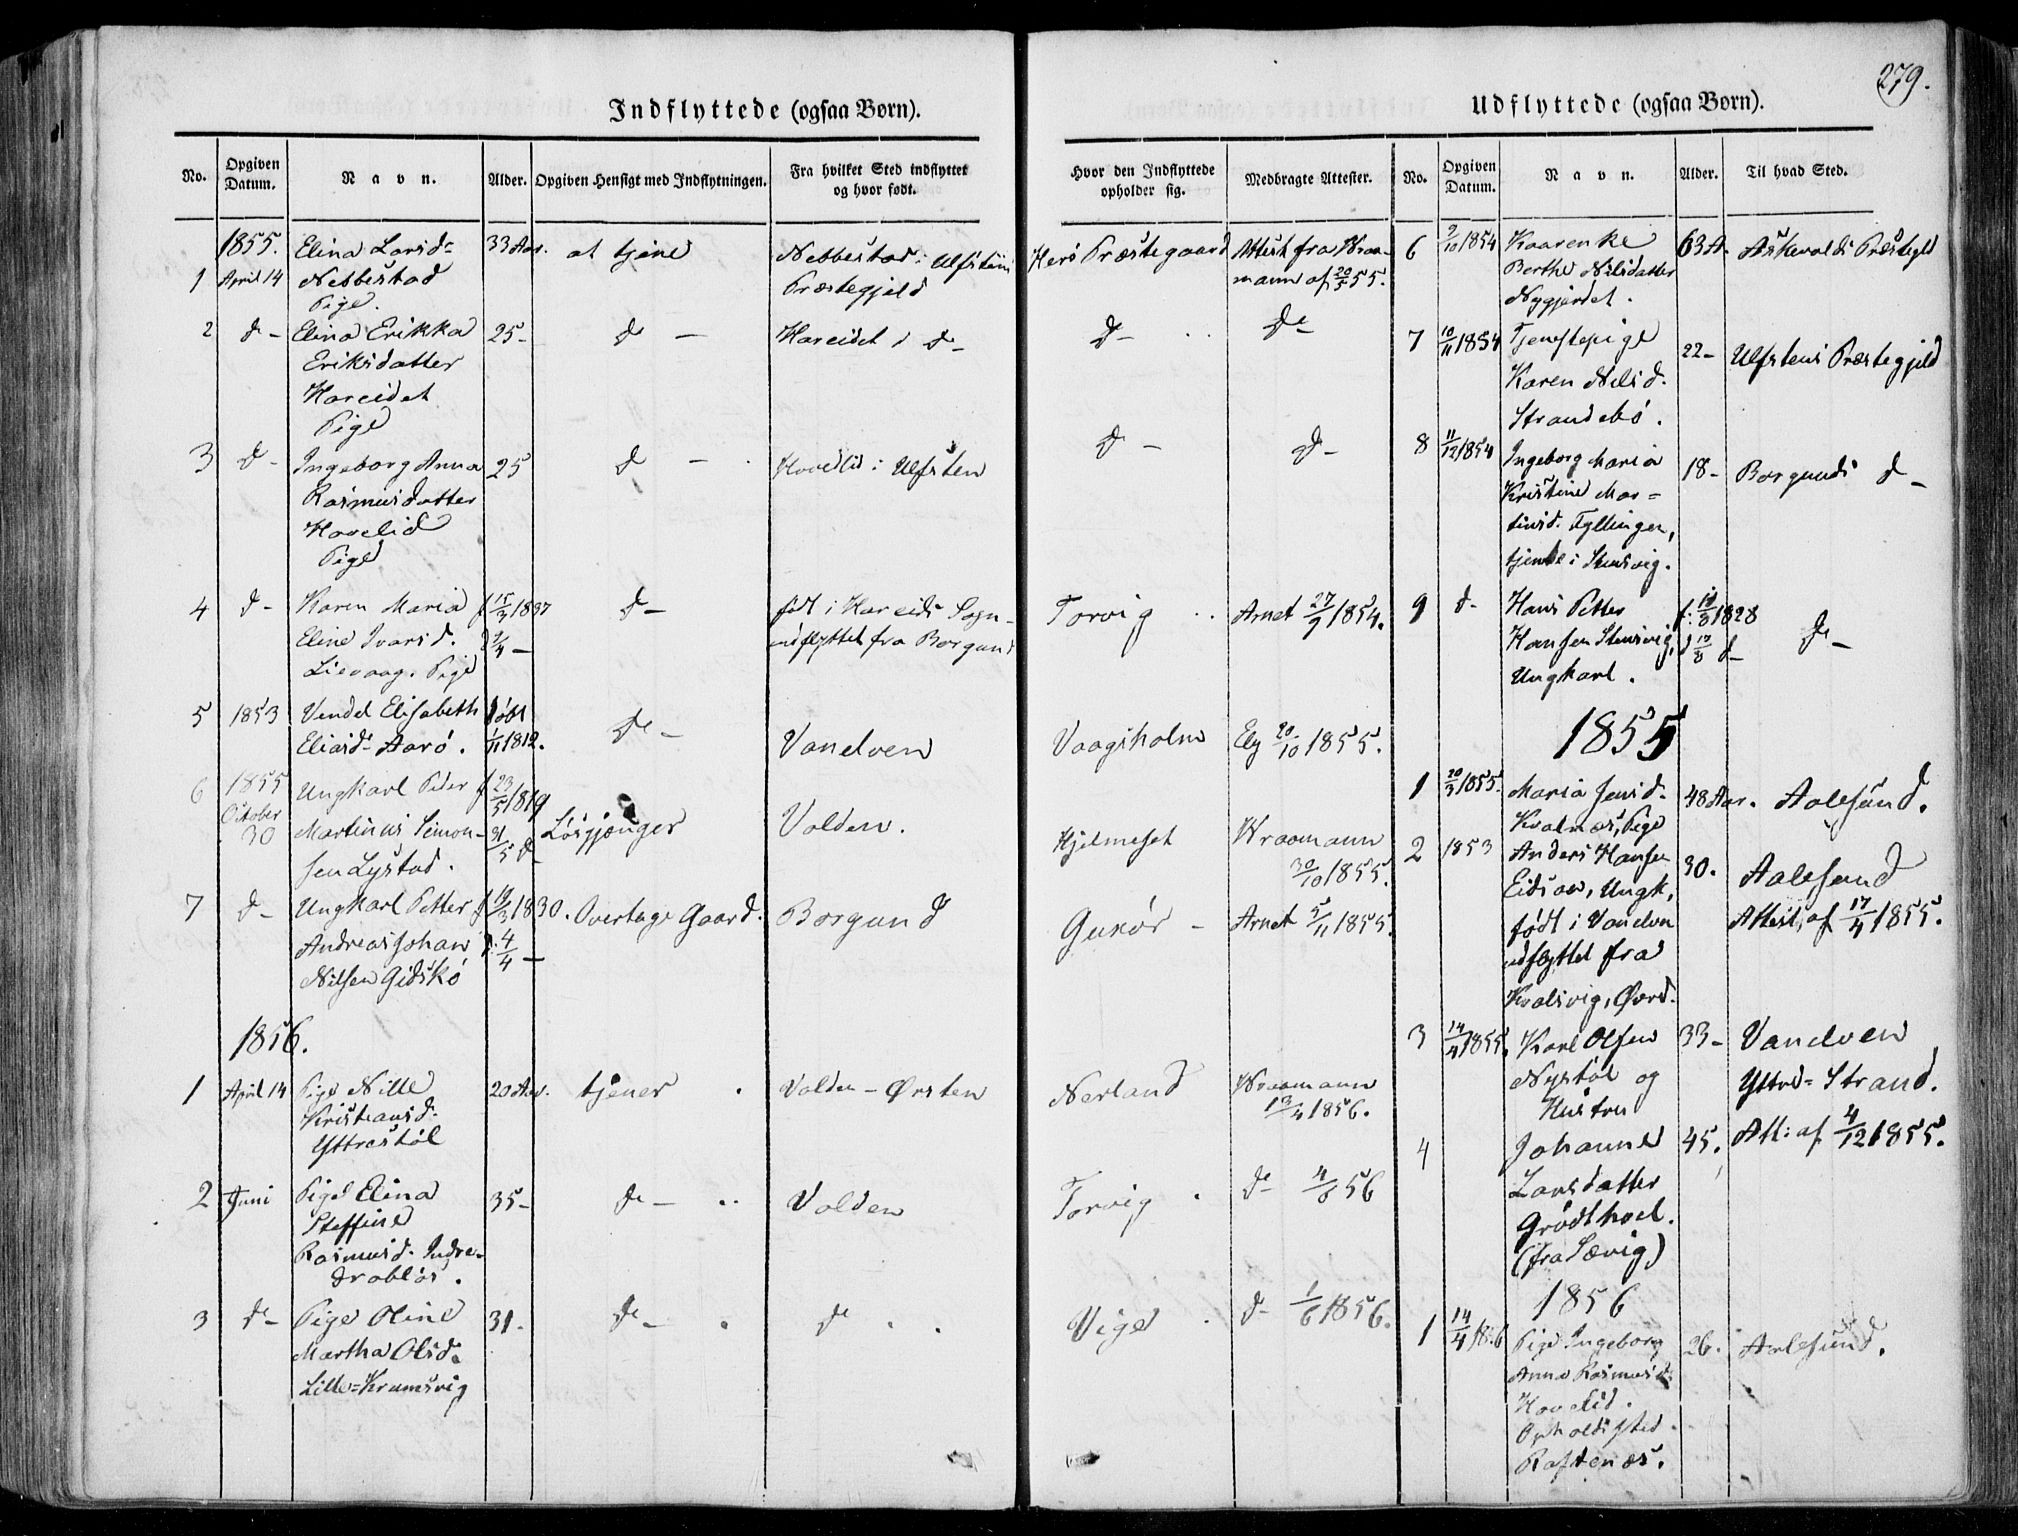 279.
Indflyttede (ogsaa Børn).
No.
Opgiven Datum.
Navn.
Alder.
Opgiven Hensigt med Indflytningen.
Fra hvilket Sted indflyttet og hvor født.
Hvor den Indflyttede opholder sig.
Medbragte Attester.
1855.
1 April 14 Elina Larsd= 33 Aar. at tjene Nebbestad i Ulfsten Herø Præstegaard Attest fra Wraa-
Nebbestad Præstegjeld mann af 20/5 55.
Pige.
2 d- Elina Erikka 25- d- Hareidet i d- d- d-
Eriksdatter
Hareidet
Pige
3 d- Ingeborg Anna 25 d- Hovelid i Ulfsten d- d-
Rasmusdatter
Hovelid
Pige
4 d- Karen Maria f 15/3 1837 d- født i Hareids Sogn Torvig Arnet 27/9 1854.
Eline Ivarsd. d 2/4 - indflyttet fra Borgund
Lievaag. Pige
5 1853 Vendel Elisabeth døbt d- Vandven Vaagsholm Ely 20/10 1855.
Eliasd= Aarø. 1/11 1812.
6 1855 Ungkarl Peder f 23/5 1819 Løsgjænger Volden. Hjelmeset Wraamann
October 30 Martinus Simon- 31/5 d- 30/10 1855.
sen Lystad.
7 d- Ungkarl Petter f 19/3 1830. Overtage Gaard. Borgund Gurør - Arnet 5/11 1855.
Andreas Johan d: 4/4 -
Nilsen Gidskø
1856.
1 April 14 Pige Nille 20 Aar. tjener Volden - Ørsten Nerland Wraamann
Kristiansd= 13/4 1856.
Yttrestøl
2 Juni Pige Elina 35- d- Volden Torvig d- 4/6 56
Steffine
Rasmusd. Indre-
drabløs.
3 d- Pige Oline 31- d- d- Vige d- 1/6 1856.
Martha Olsd.
Lille=Kramsvig
Udflyttede (ogsaa Børn).
No.
Opgiven Datum.
Navn.
Alder.
Til hvad Sted.
6 9/10 1854 Kaarenke 63 A. Askevolds Præstegld
Berthe Nilsdatter
Nygjerdet.
7 10/11 1854 Tjenestepige 22- Ulfstens Præstegjeld
Karen Nilsd.
Strandebø.
8 11/12 1854 Ingeborg Maria 18- Borgunds d-
Kristine Mar=
tinsd. Tyllinger,
tjente i Stensvig.
9 d- Hans Petter f: 10/8 1828 d-
Hansen Stensvig, d 10/8 d-
Ungkarl.
1855
1 20/3 1855. Maria Jensd. 48 Aar. Aalesund.
Kvalnæs, Pige
2 1853 Anders Hansen 30. Aalesund
Eidsaa, Ungk, Attest, af 17/4 1855.
født i Vandven
udflyttet fra
Kvalsvig, Øvrd.
3 14/4 1855. Karl Olsen 33- Vandven
Nystøl og Yttre=Strand.
Hustru
4 Johanne 45. Att: af 4/12 1855.
Larsdatter
Grødthoel.
(fra Sævig)
1856
1 14/4 1856 Pige Ingeborg 26. Aalesund.
Anna Rasmusd=
Hovelid.
Opholdssted
Raftenæs.